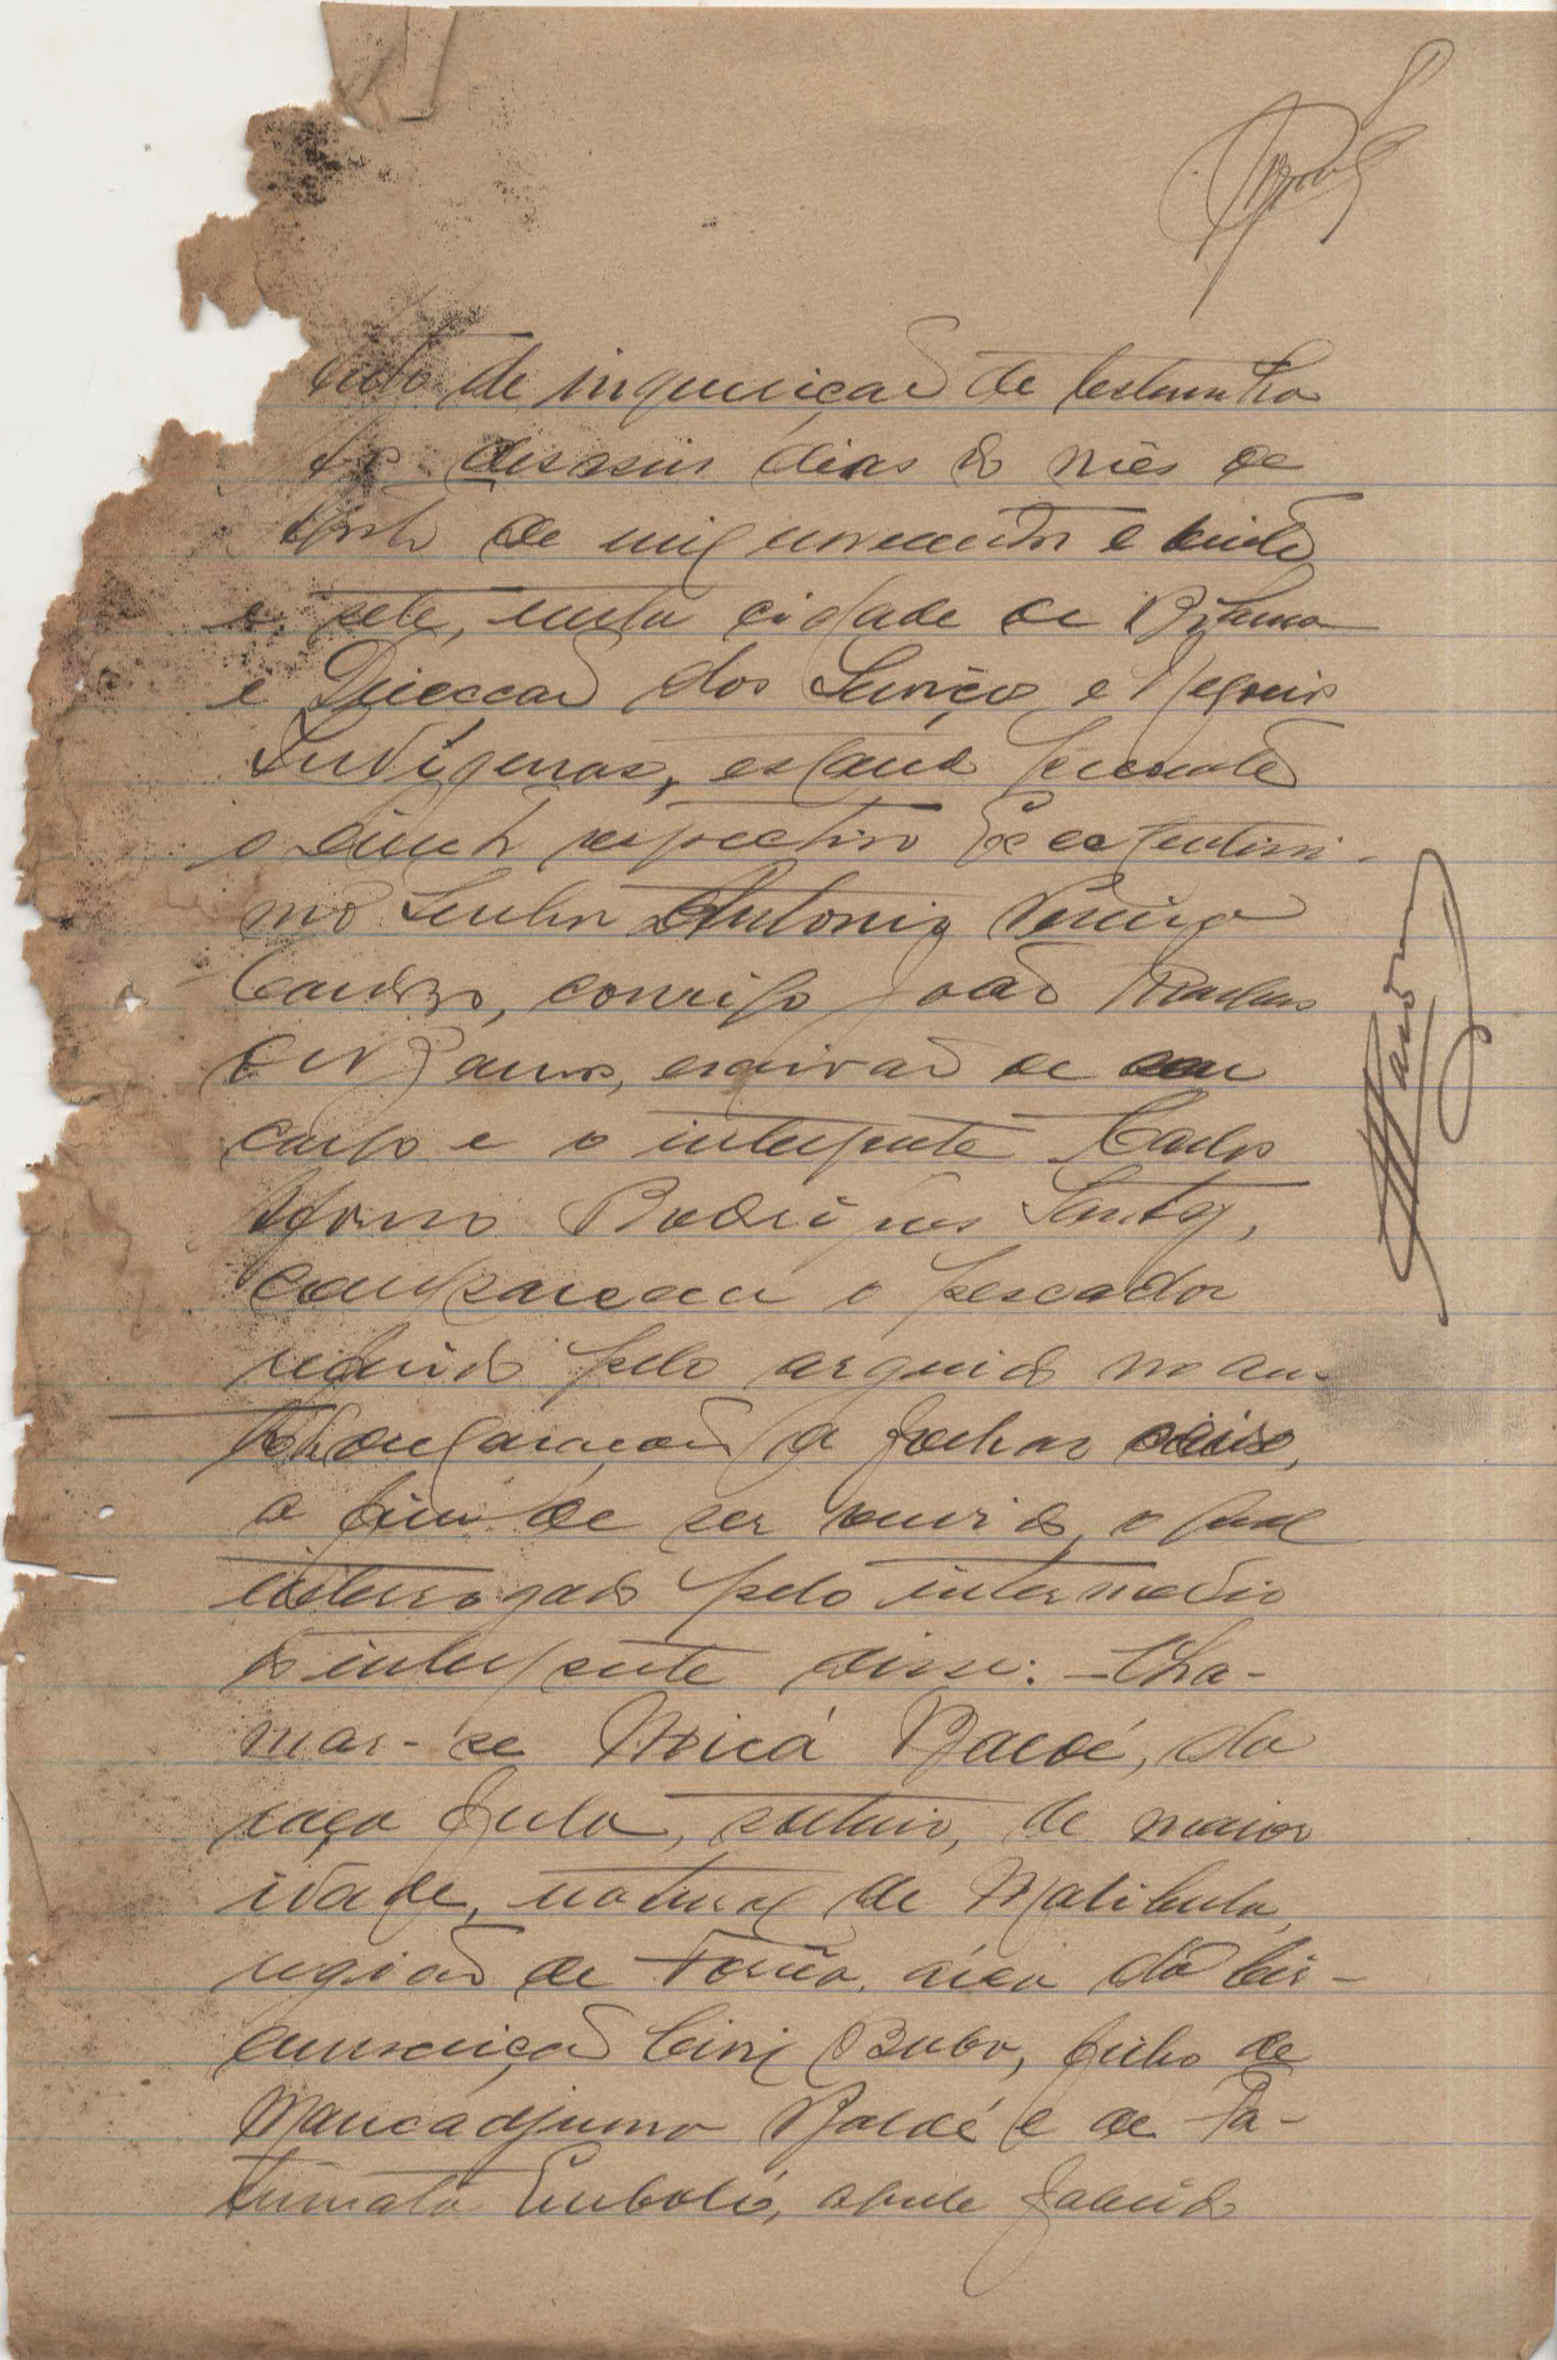 Auto de inquirição de testemunha
desaseis dias do mês de
Agosto de mil novecentos e vinte
e sete, nesta cidade de Bolama
e Direcção dos Serviços e Negocios
Indígenas, estando presente
o Director respectivo Excelentissi-
mo Senhor Antonio Pereira
Cardoso, comigo João
escrivão de seu
cargo e o interprete Carlos
Afonso Rodrigues Santos,
compareceu o pescador
referido pelo arguido no au-
to de declarações a folhas cinco,
a fim de ser ouvido, o qual
interrogado pelo intermedio
do interprete disse: - Cha-
mar-se Moricá Baldé, da
raça fula, solteiro, de maior
idade, natural de Matibula,
região de Forria, área da Cir-
cunscrição Civil Buba, filho de
Mancadjuma Baldé e de Fa-
tumatá Embaló, aquele falecido